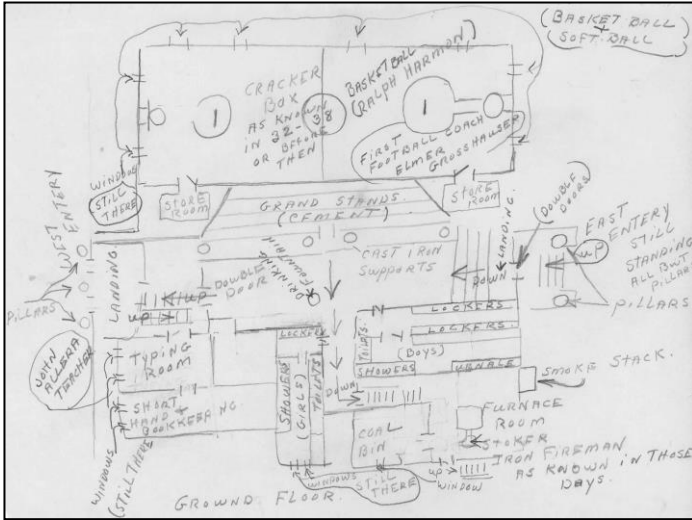 (BASKET BALL
+
SOFT BALL)
CRACKER
BOX
AS KNOWN
IN 32-38
OR BEFORE
THEN
1
BASKETBALL
(RALPH HARMON)
1
FIRST
FOOTBALL COACH
ELMER
GROSSHAUSER
WINDOWS
STILL
THERE
STORE
ROOM
GRAND STANDS.
(CEMENT)
STORE
ROOM
(DOUBLE
DOORS)
WEST ENTERY
LANDING.
PILLARS
DOUBLE
DOOR
DRINKING
FOUNTAIN
CAST IRON
SUPPORTS
LANDING.
DOWN
UP
EAST
ENTERY
STILL
STANDING
ALL BUT
PILLARS
PILLARS
UP
UP
JOHN
ALLERA
TEACHER
TYPING
ROOM
SHORT
HAND +
BOOKKEEPING
WINDOWS
(STILL THERE)
LOCKERS
SHOWERS
(GIRLS)
TOILETS
DOWN
TOILETS.
LOCKERS
LOCKERS.
(BOYS)
SHOWERS
SMOKE STACK.
COAL
BIN
FURNACE
ROOM
STOKER
IRON FIREMAN
AS KNOWN IN THOSE
DAYS.
UP
WINDOW
WINDOWS
STILL
THERE
GROWND FLOOR.